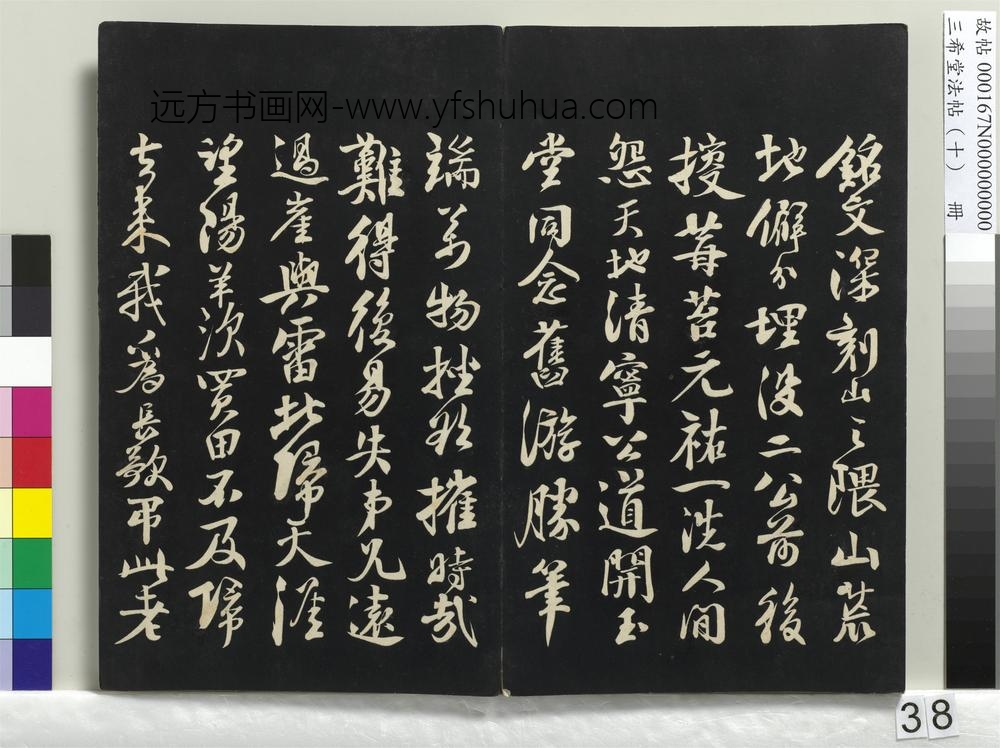 故帖 000167N000000000
三希堂法帖（十） 冊
远方书画网-www.yfshuhua.com
銘文深刻山之隈山荒
地僻分埋没二公前後
搜莓苔元祐一洗人間
怨天地清寧公道開玉
堂同念舊游勝筆
端萬物挫欲摧時哉
難得復易失弟兄遠
過崔與雷北歸天涯
望陽羨買田不及歸
去來我為長歌弔此老
38